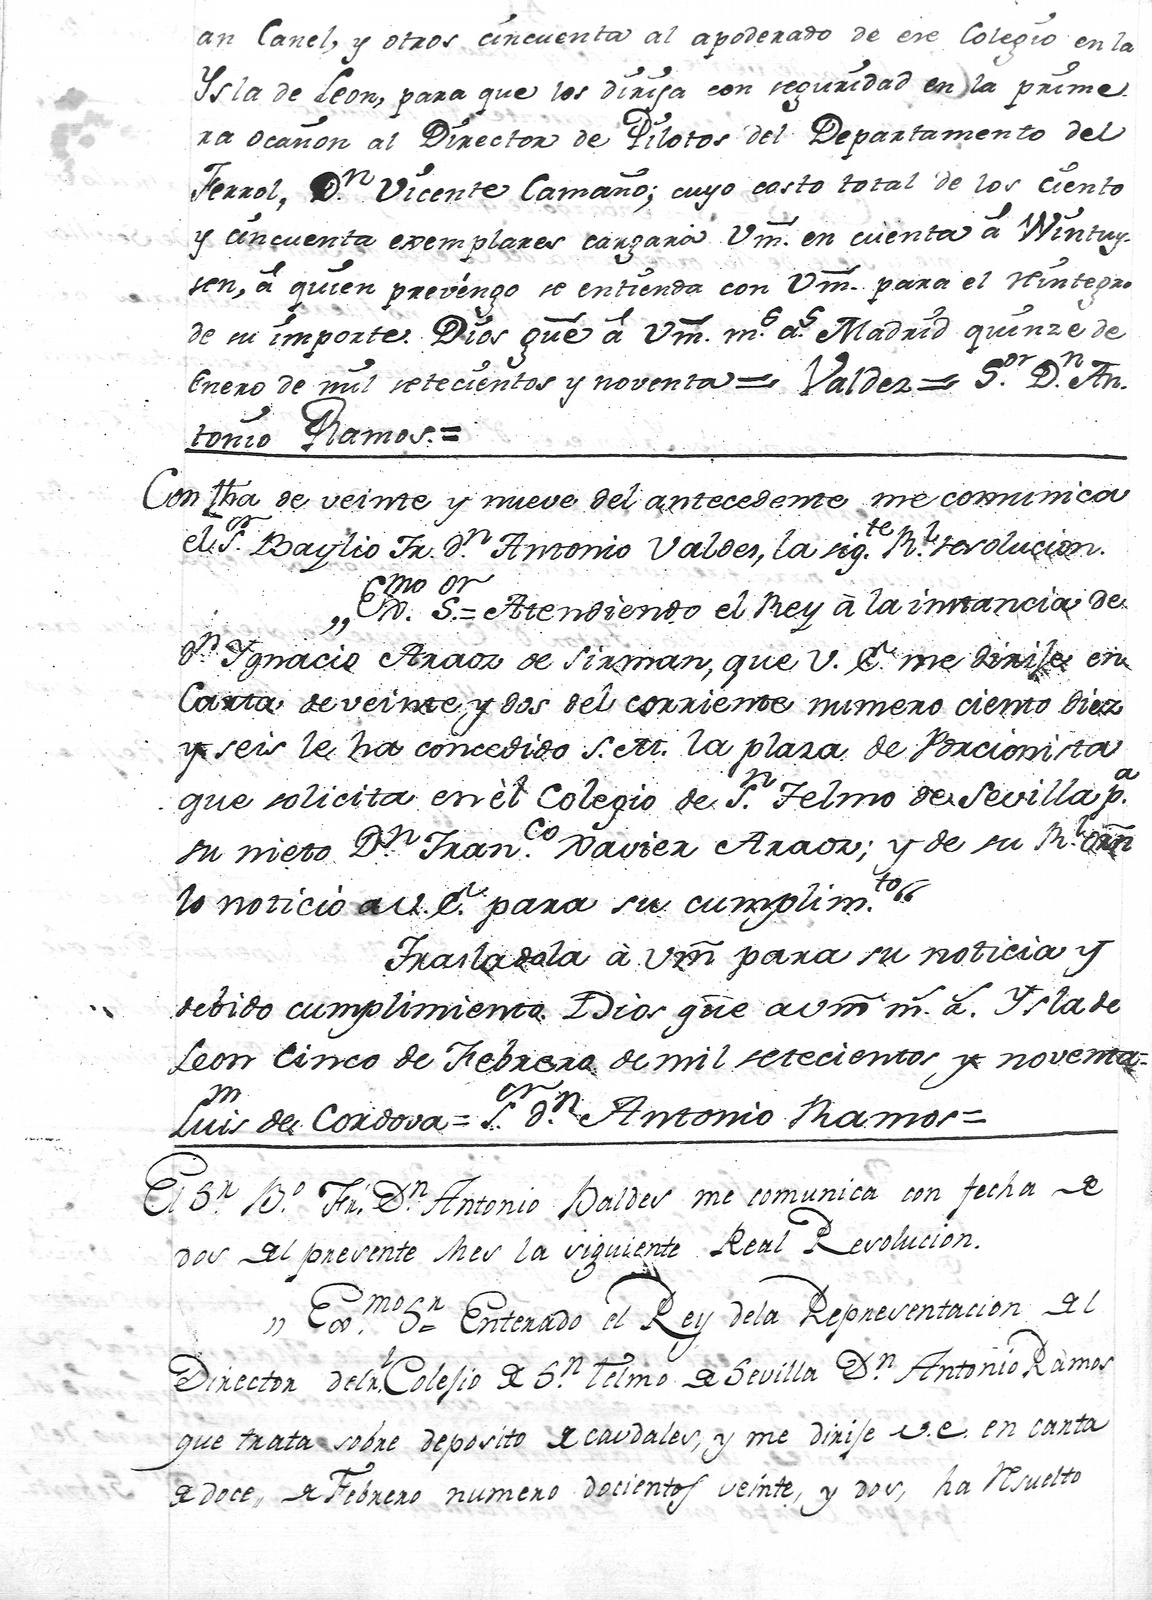 an Canel, y otros cincuenta al apoderado de ese Colegio en la
Ysla de Leon, para que los dirija con seguridad en la prime-
ra ocasion al Director de Pilotos del Departamento del
Ferrol, Dn. Vicente Camaño; cuyo costo total de los ciento
y cincuenta exemplares cargará Vm. en cuenta á Wintuy-
sen, á quien prevéngo se entienda con Vm. para el reintegro
de su importe. Dios güe á Vm. ms. as. Madrid quinze de
Enero de mil setecientos y noventa = Valdez = Sor. Dn. An-
tonio Ramos. =
Con fha de veinte y nueve del antecedente me comunica
el Sor. Baylio Fr. dn. Antonio Valdes, la sigte. Rl. resolucion.
„ Exmo. Sor. = Atendiendo el Rey à la instancia de
dn. Ygnacio Araoz de Sirman, que V. E. me dirije en
Carta de veinte y dos del corriente numero ciento diez
y seis le ha concedido S. M. la plaza de Porcionista
que solicita en èl Colegio de Sn. Telmo de Sevilla pa.
su nieto Dn. Franco. Xavier Araoz; y de su Rl. orñ
lo noticio a V. E. para su cumplimto. “
Trasladola à Vm̃ para su noticia y
debido cumplimiento. Dios güe a vm̃ m. a. Ysla de
Leon Cinco de Febrero de mil setecientos y noventa =
Luis de Cordova = Sor. dn. Antonio Ramos =
El Sr. Bo. Fr. Dn. Antonio Baldes me comunica con fecha de
dos del presente Mes la siguiente Real Resolucion.
„ Exmo. Sr. = Enterado el Rey dela Representacion del
Director del Rl. Colejio de Sn. Telmo de Sevilla Dn. Antonio Ramos
que trata sobre deposito de caudales, y me dirije v.e. en carta
de doce, de Febrero numero docientos veinte, y dos, ha Resuelto